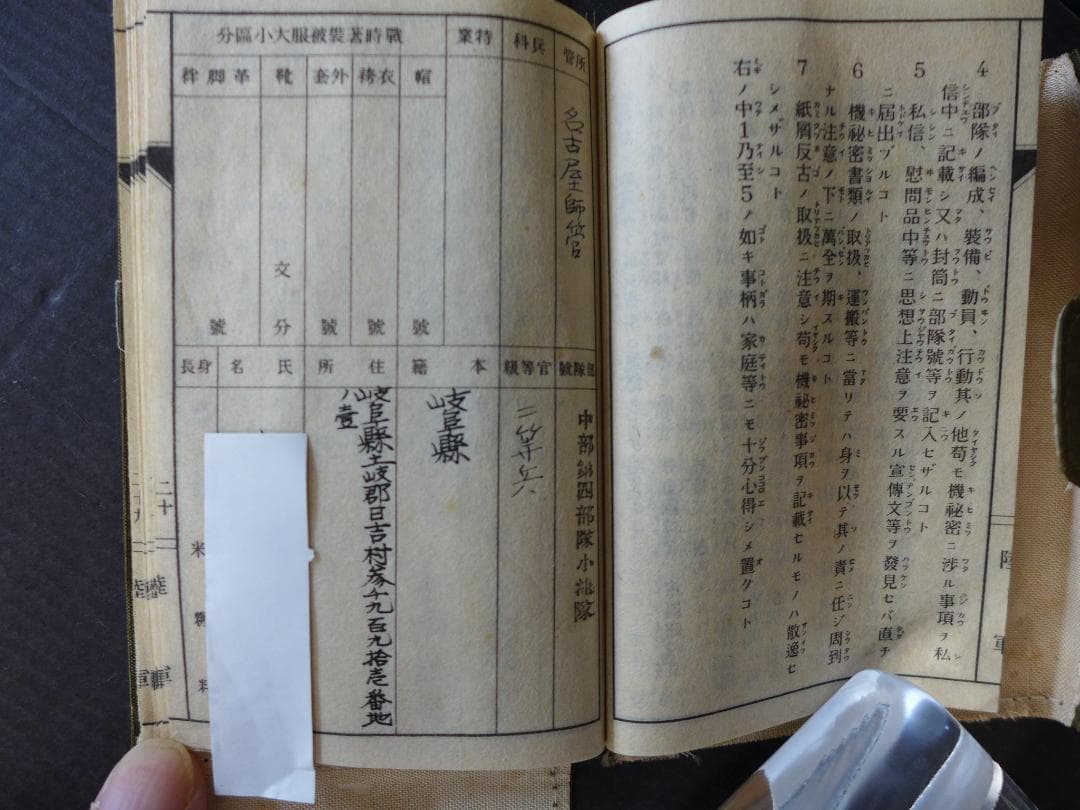 4 部隊ノ編成、裝備、動員、行動其ノ他苟モ機祕密ニ涉ル事項ヲ私
信中ニ記載シ又ハ封筒ニ部隊號等ヲ記入セザルコト
5 私信、慰問品中等ニ思想上注意ヲ要スル宣傳文等ヲ發見セバ直チ
ニ屆出ヅルコト
6 機祕密書類ノ取扱、運搬等ニ當リテハ身ヲ以テ其ノ責ニ任ジ周到
ナル注意ノ下ニ萬全ヲ期スルコト
7 紙屑反古ノ取扱ニ注意シ苟モ機祕密事項ヲ記載セルモノハ散逸セ
シメザルコト
右ノ中1乃至5ノ如キ事柄ハ家庭等ニモ十分心得シメ置クコト
陸軍
所管 名古屋師管
部隊號 中部第四部隊小池隊
兵科
官等級 二等兵
特業
本籍 岐阜縣
戰時著裝被服大小區分
帽 號
衣袴 號
外套 號
靴 文 分
革脚絆 號
住所 岐阜縣土岐郡日吉村
番地
八壹
氏名
身長 米 糎 粍
二十
陸軍